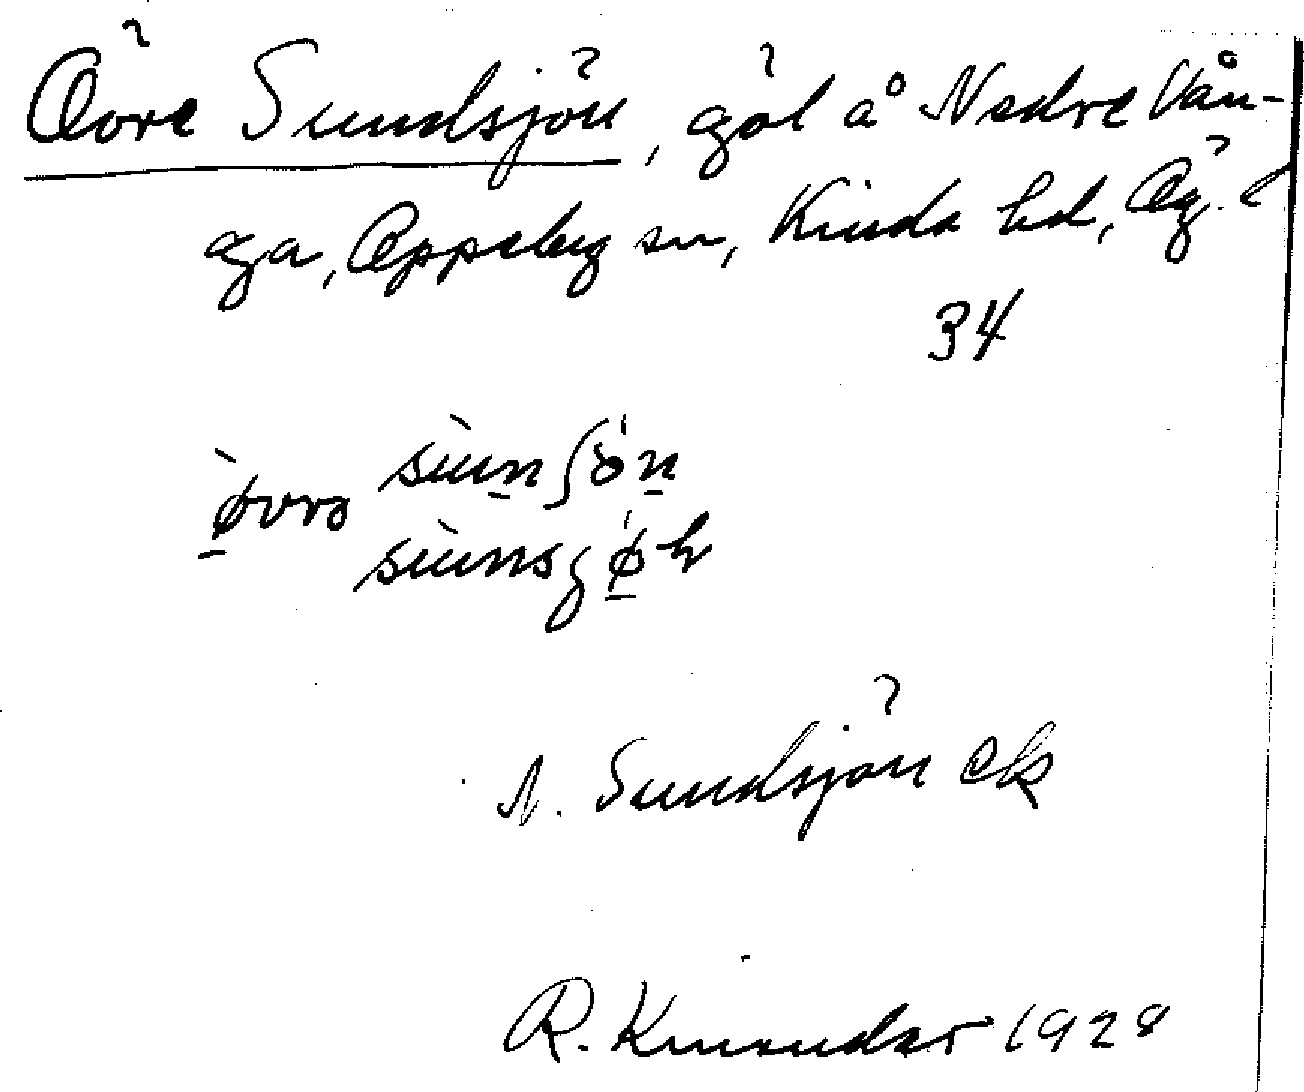 Övre Sundsjön, göl å Nedre Vån-
ga, Oppeby sn, Kinda hd, Ög.
34
ø̀vrə sùnʃön
sùnsjøn
N. Sundsjön ek
R. Kinander 1928